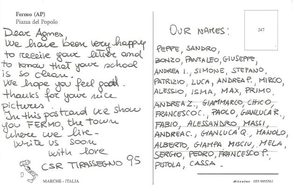 Fermo (AP)
Piazza del Popolo
Dear Agnes,
We have been very happy
to receive your letter and
to know that your school
is so clean.
We hope you feel good
thanks for your nice
pictures.
In this postcard we show
you FERMO, the town
where we live.
Write us soon
with love
CSR TIRASSEGNO 95
MARCHE - ITALIA
OUR NAMES:
247
PEPPE, SANDRO,
BONZO, PANTALEO, GIUSEPPE,
ANDREA I., SIMONE, STEFANO,
PATRIZIO, LUCA, ANDREA P., MIRCO,
ALESSIO, ISMA, MAX, PRIMO,
ANDREA Z., GIAMMARCO, CHICO,
FRANCESCO C., PAOLO, GIANLUCA R.,
FABIO, ALESSANDRO, MASSI,
ANDREA C., GIANLUCA Q., MANOLO,
ALBERTO, GIAMPA, MOCIU, MELA,
SERGIO, PEDRO, FRANCESCO P.,
POTOLA, CASSA.